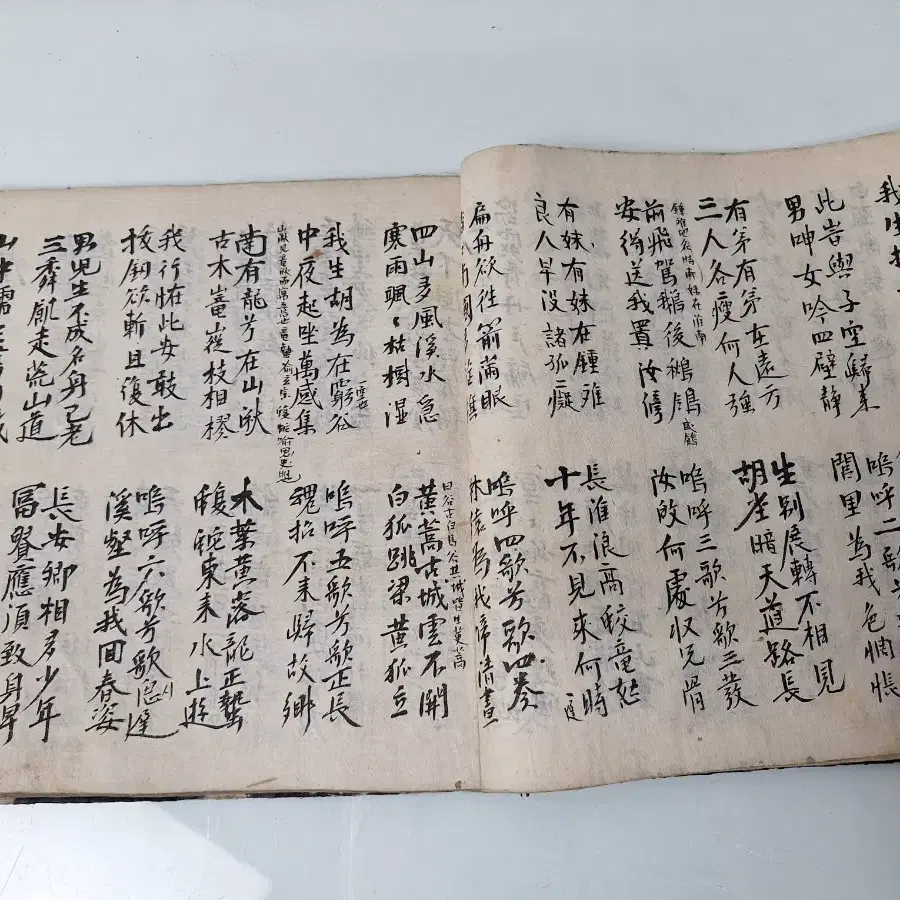 我生托
此岂與子空歸来
男呻女吟四壁静
嗚呼二歌
閭里為我色惆悵
有弟有弟在遠方
三人各瘦何人强
生别展轉不相見
胡塵暗天道路長
前飛駕鵝後鶖鶬
安得送我置汝傍
嗚呼三歌兮歌三發
汝敀何處収兄骨
鍾離地名時甫妹在淮南
有妹有妹在鍾離
良人早没諸孤癡
長淮浪高蛟竜怒
十年不見来何時
扁舟欲往箭滿眼
南國
嗚呼四歌兮歌四奏
林猿為我啼清晝
四山多風溪水急
寒雨颯〻枯樹湿
黄蒿古城雲不開
白狐跳梁黄狐立
我生胡為在窮谷
中夜起坐萬感集
嗚呼五歌兮歌正長
魂招不来歸故鄉
南有龍兮在山湫
古木巃嵷枝相樛
木葉黄落龍正蟄
蝮蛇東来水上遊
我行怪此安敢出
拔釼欲斬且復休
嗚呼六歌兮歌思遲
溪壑為我回春姿
男兒生不成名身已老
三年飢走荒山道
長安卿相多少年
富貴應須致身早
山中儒生